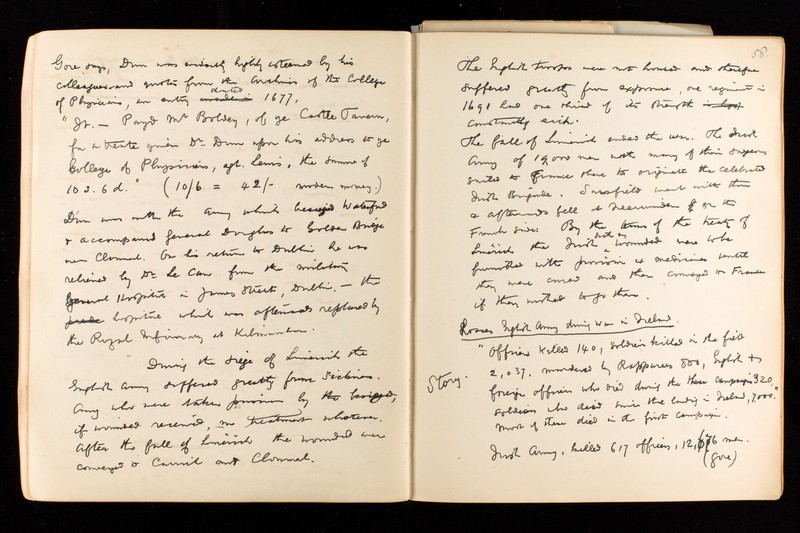 Gore says, Dun was evidently highly esteemed by his
colleagues and quotes from the Archives of the College
of Physicians, an entry dated 1677.
"It. — Payd Mr Boldey, of ye Castle Tavern,
for a treate given Dr Dun upon his address to ye
College of Physicians, agt. Lewis, the summe of
10 s. 6 d." (10/6 = 42/- modern money.)
Dun was with the army which besieged Waterford
& accompanied General Douglas to Golden Bridge
near Clonmel. On his return to Dublin he was
relieved by Dr Le Can from the military
General Hospital in James Street, Dublin, — the
hospital which was afterwards replaced by
the Royal Infirmary at Kilmainham.
During the siege of Limerick the
English army suffered greatly from sickness.
Any who were taken prisoners by the
if wounded received, no treatment whatever.
After the fall of Limerick the wounded were
conveyed to Carrick and Clonmel.
58.
The English troops were not housed and therefore
suffered greatly from exposure, one regiment in
1691 had one third of its strength is lost
constantly sick.
The fall of Limerick ended the war. The Irish
Army of 19,000 men with many of their surgeons
sailed to France there to originate the celebrated
Irish Brigade. Sarsfield went with them
& afterwards fell at on the
French side. By the terms of the treaty of
Limerick the Irish sick or wounded were to be
furnished with provisions & medicines until
they were cured and then conveyed to France
if they wished to go there.
Losses English Army during war in Ireland.
"Officers killed 140, soldiers killed in the field
2,037. murdered by Rapparees 800, English &
Story. foreign officers who died during the three campaigns 320,
soldiers who died since the landing in Ireland, 7,000."
most of these died in the first campaign.
Irish Army, killed 617 officers, 12,676 men.
(Gore)